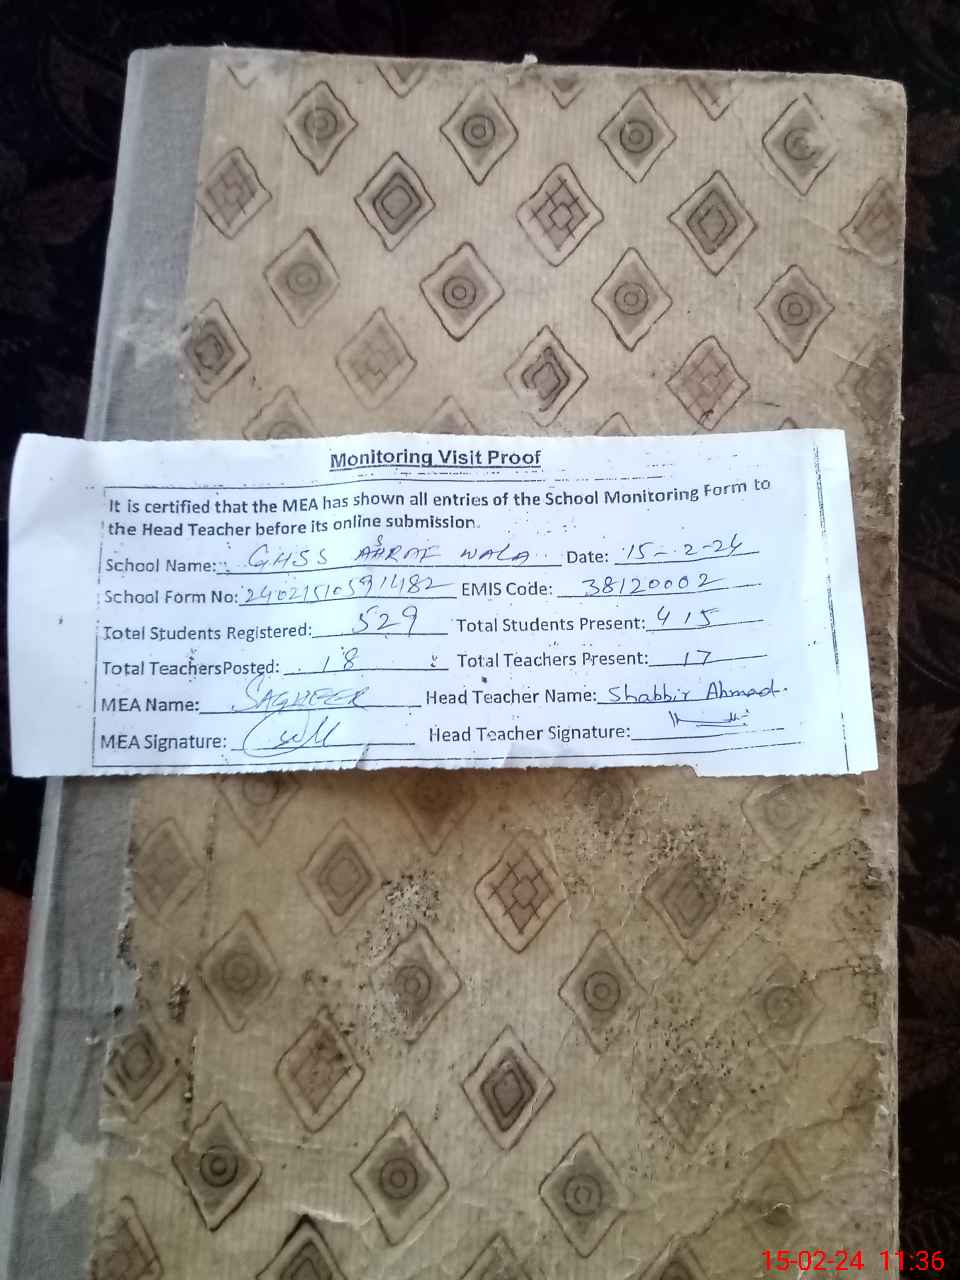 Monitoring Visit Proof
It is certified that the MEA has shown all entries of the School Monitoring Form to
the Head Teacher before its online submission.
School Name: GHSS AHRAF WALA Date: 15-2-24
School Form No: EMIS Code: 38120002
Total Students Registered: 529 Total Students Present: 415
Total Teachers Posted: 18 Total Teachers Present: 17
MEA Name: SAGHEER Head Teacher Name: Shabbir Ahmad.
MEA Signature: Head Teacher Signature:
15-02-24 11:36